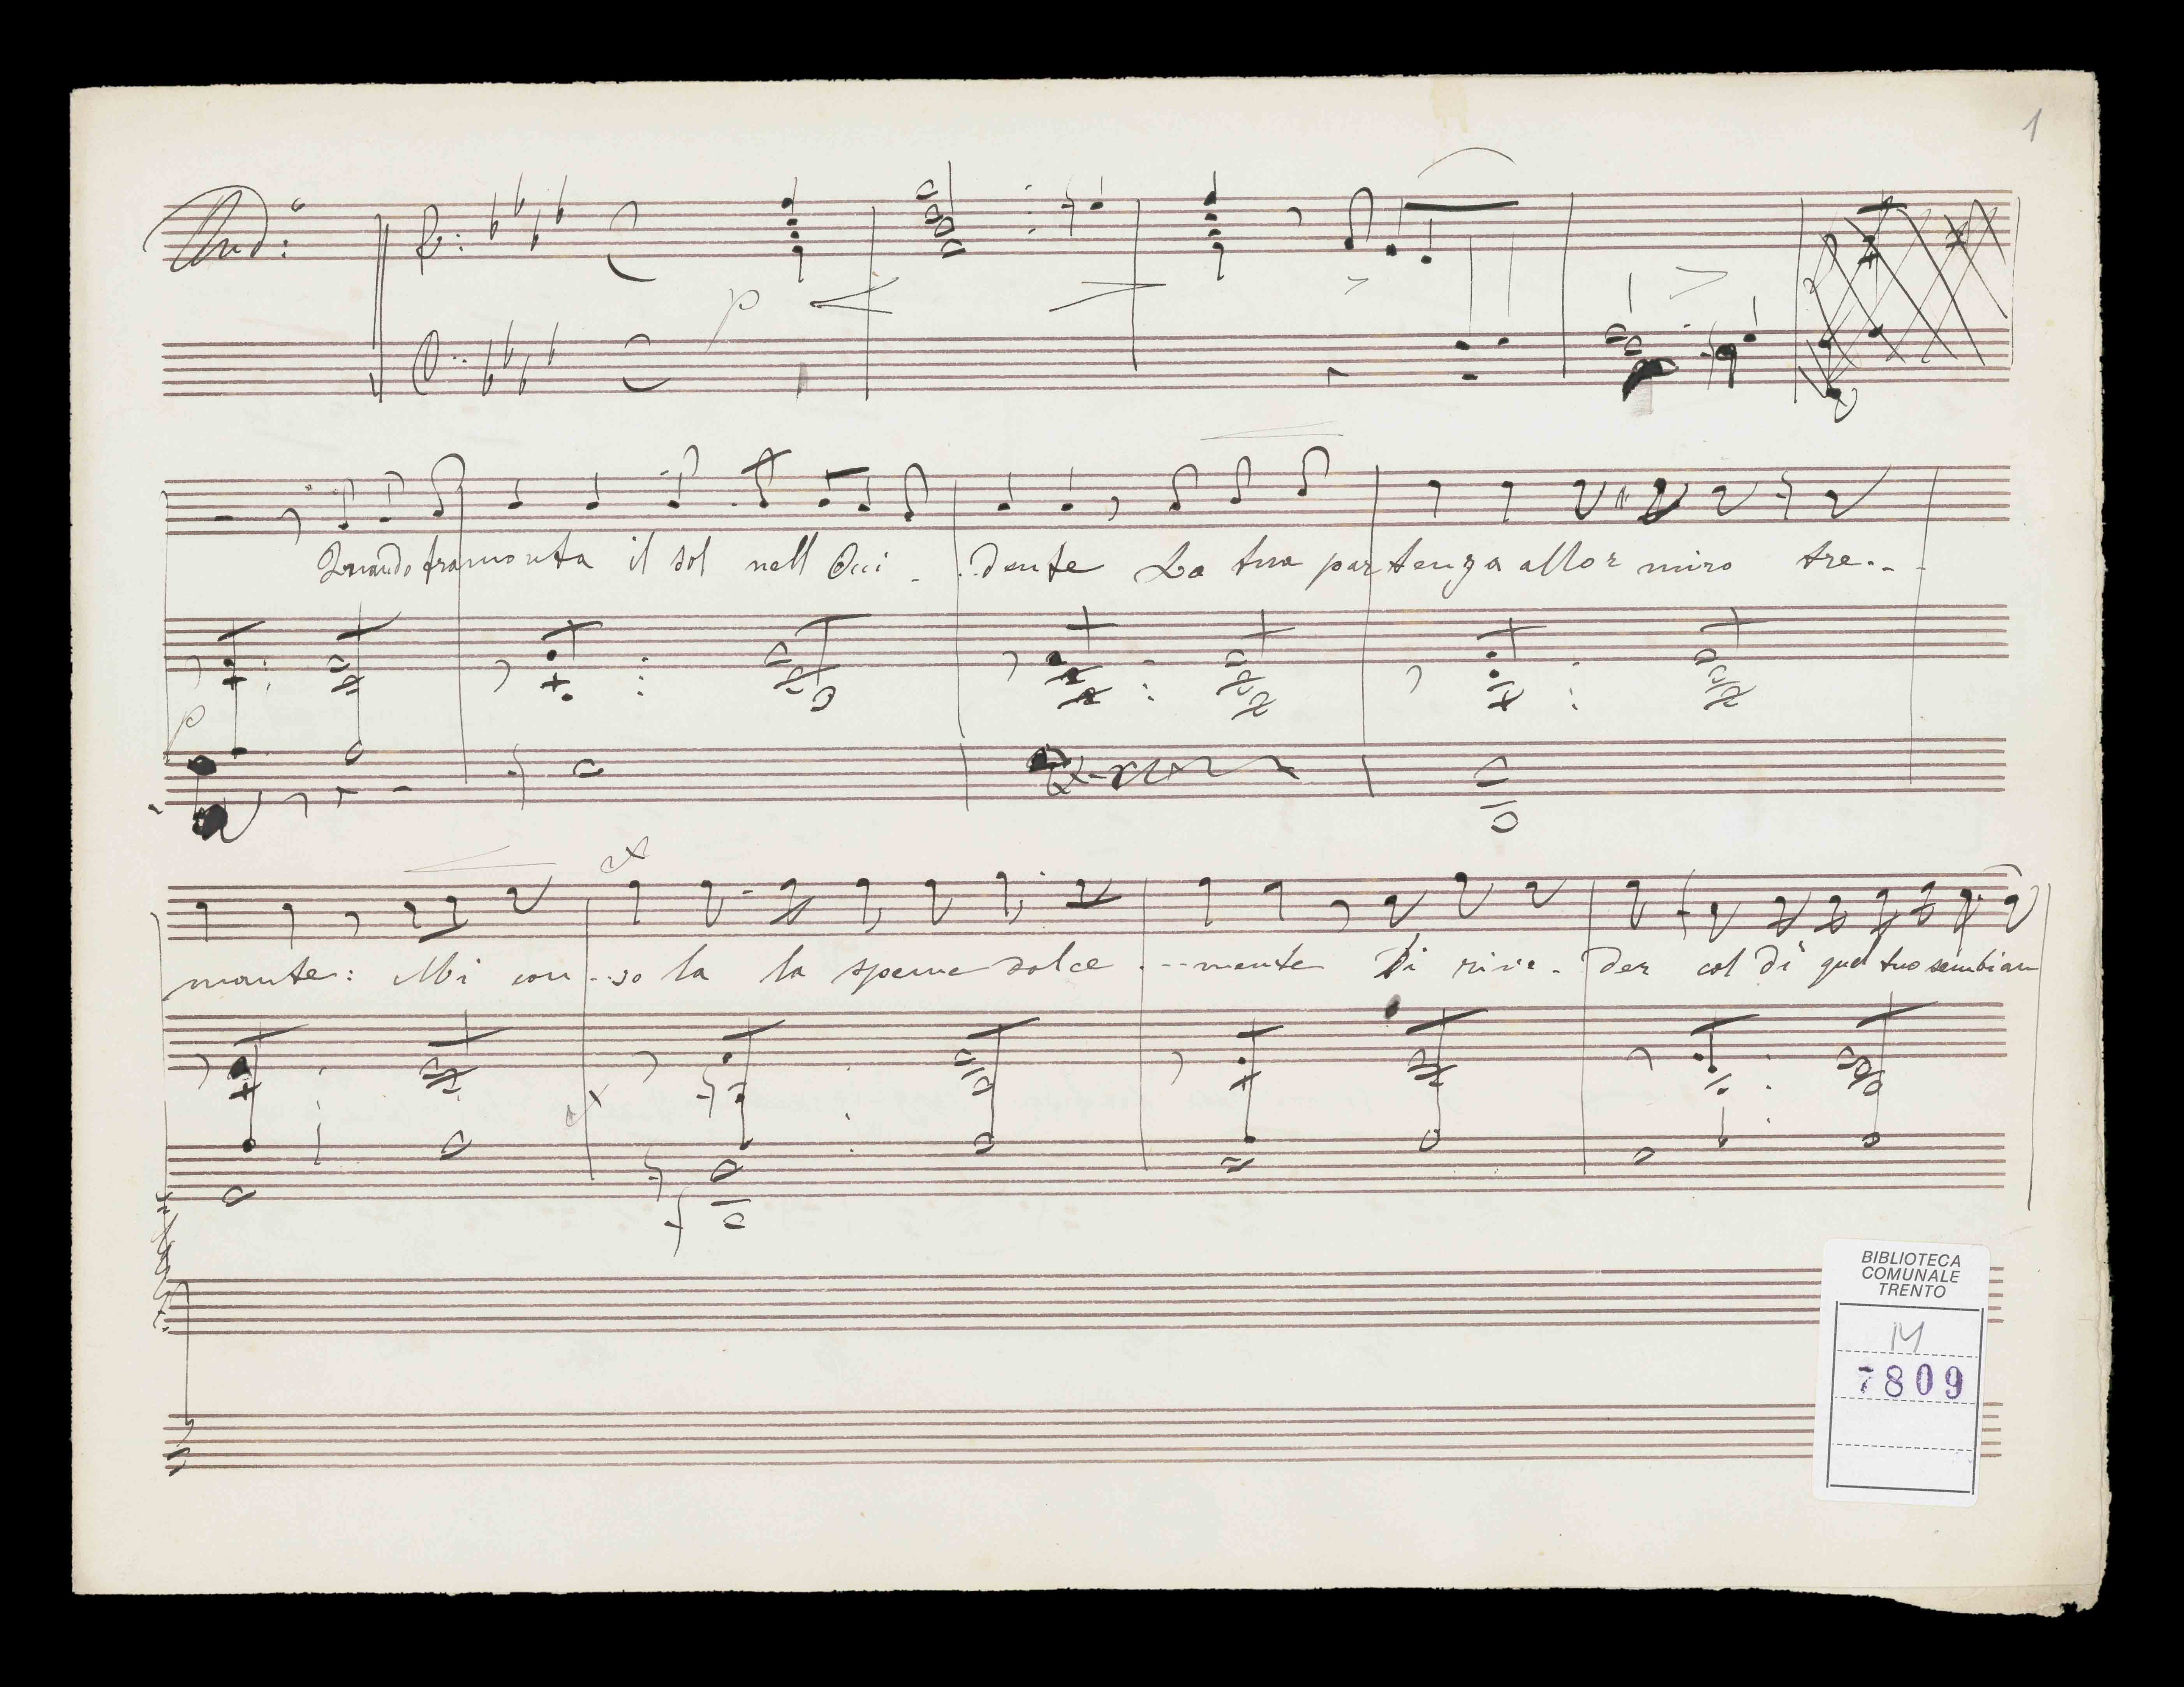 1
And:º
p
Quando tramonta il sol nell Occi - . . dente La tua partenza allor miro tre.. -
p
mante: Mi con - . so la la speme dolce . - - mente Di rive - der col dì quel tuo sembian
BIBLIOTECA
COMUNALE
TRENTO
M
7809